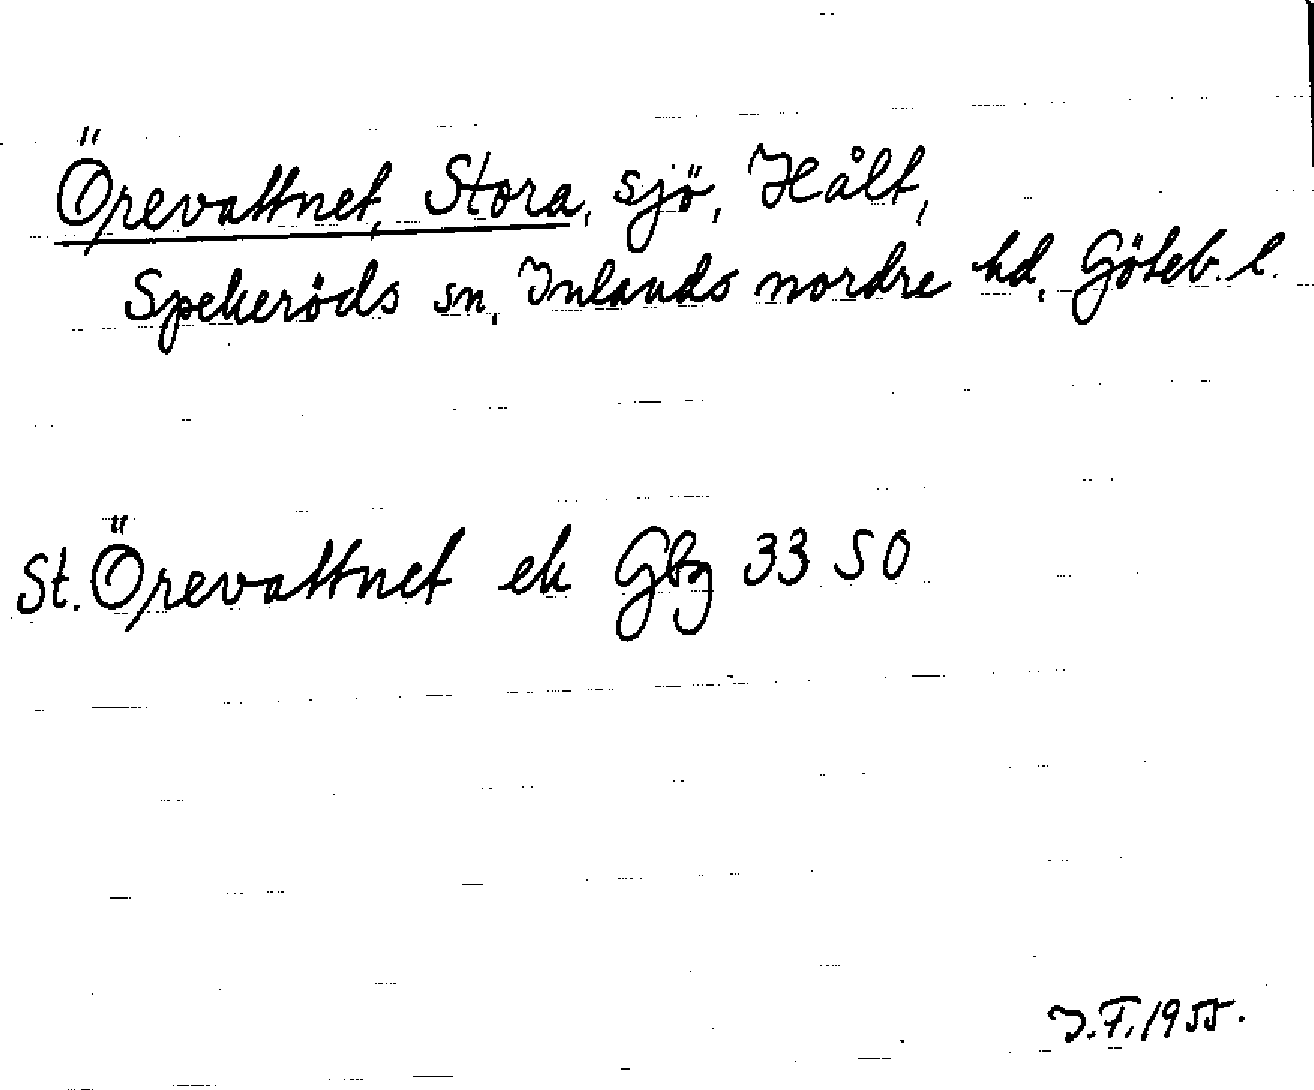 Örevattnet, Stora, sjö, Hålt,
Spekeröds sn, Inlands nordre hd, Göteb. l.
St. Örevattnet ek Gbg 33 SO
J.F. 1955.